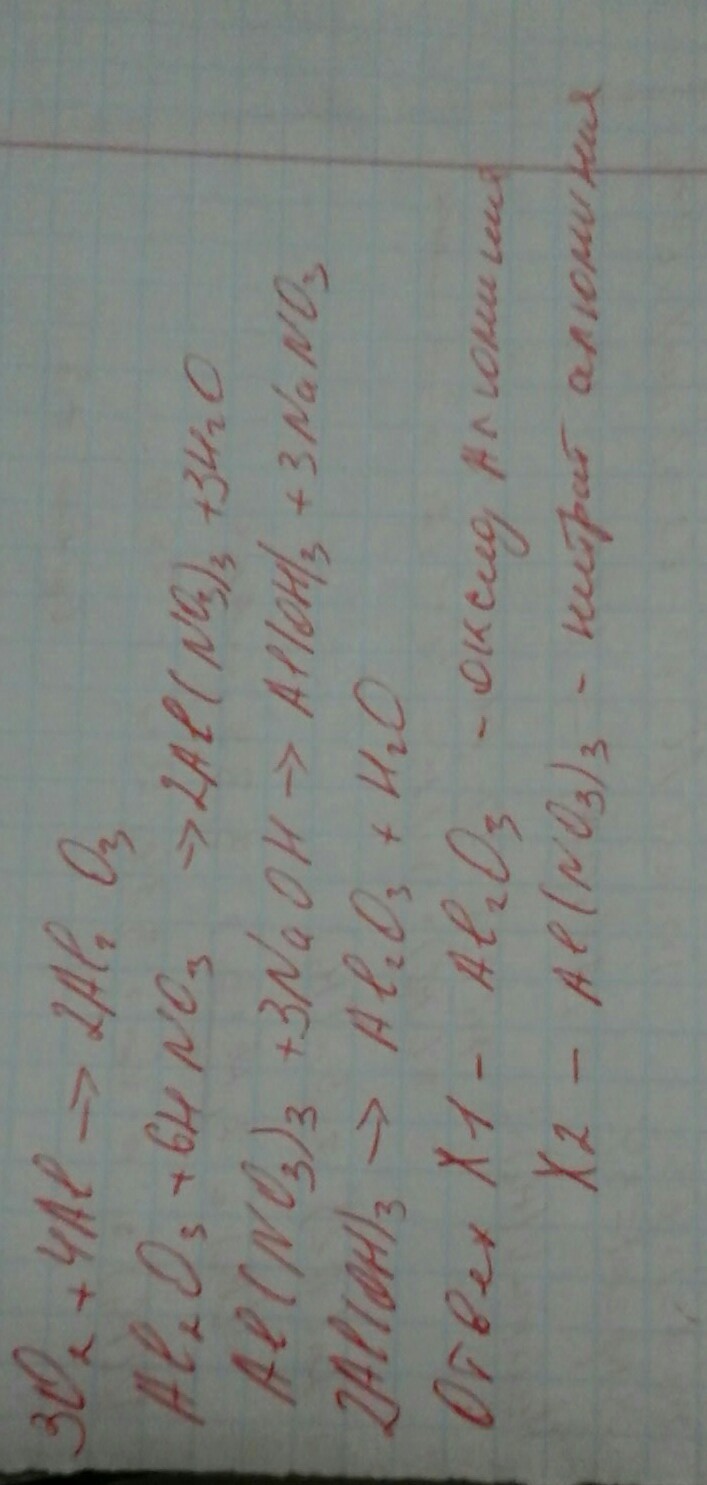 3O₂ + 4Al → 2Al₂O₃
Al₂O₃ + 6HNO₃ → 2Al(NO₃)₃ + 3H₂O
Al(NO₃)₃ + 3NaOH → Al(OH)₃ + 3NaNO₃
2Al(OH)₃ → Al₂O₃ + H₂O
Ответ X1 - Al₂O₃ - оксид Алюминия
X2 - Al(NO₃)₃ - нитрат алюминия